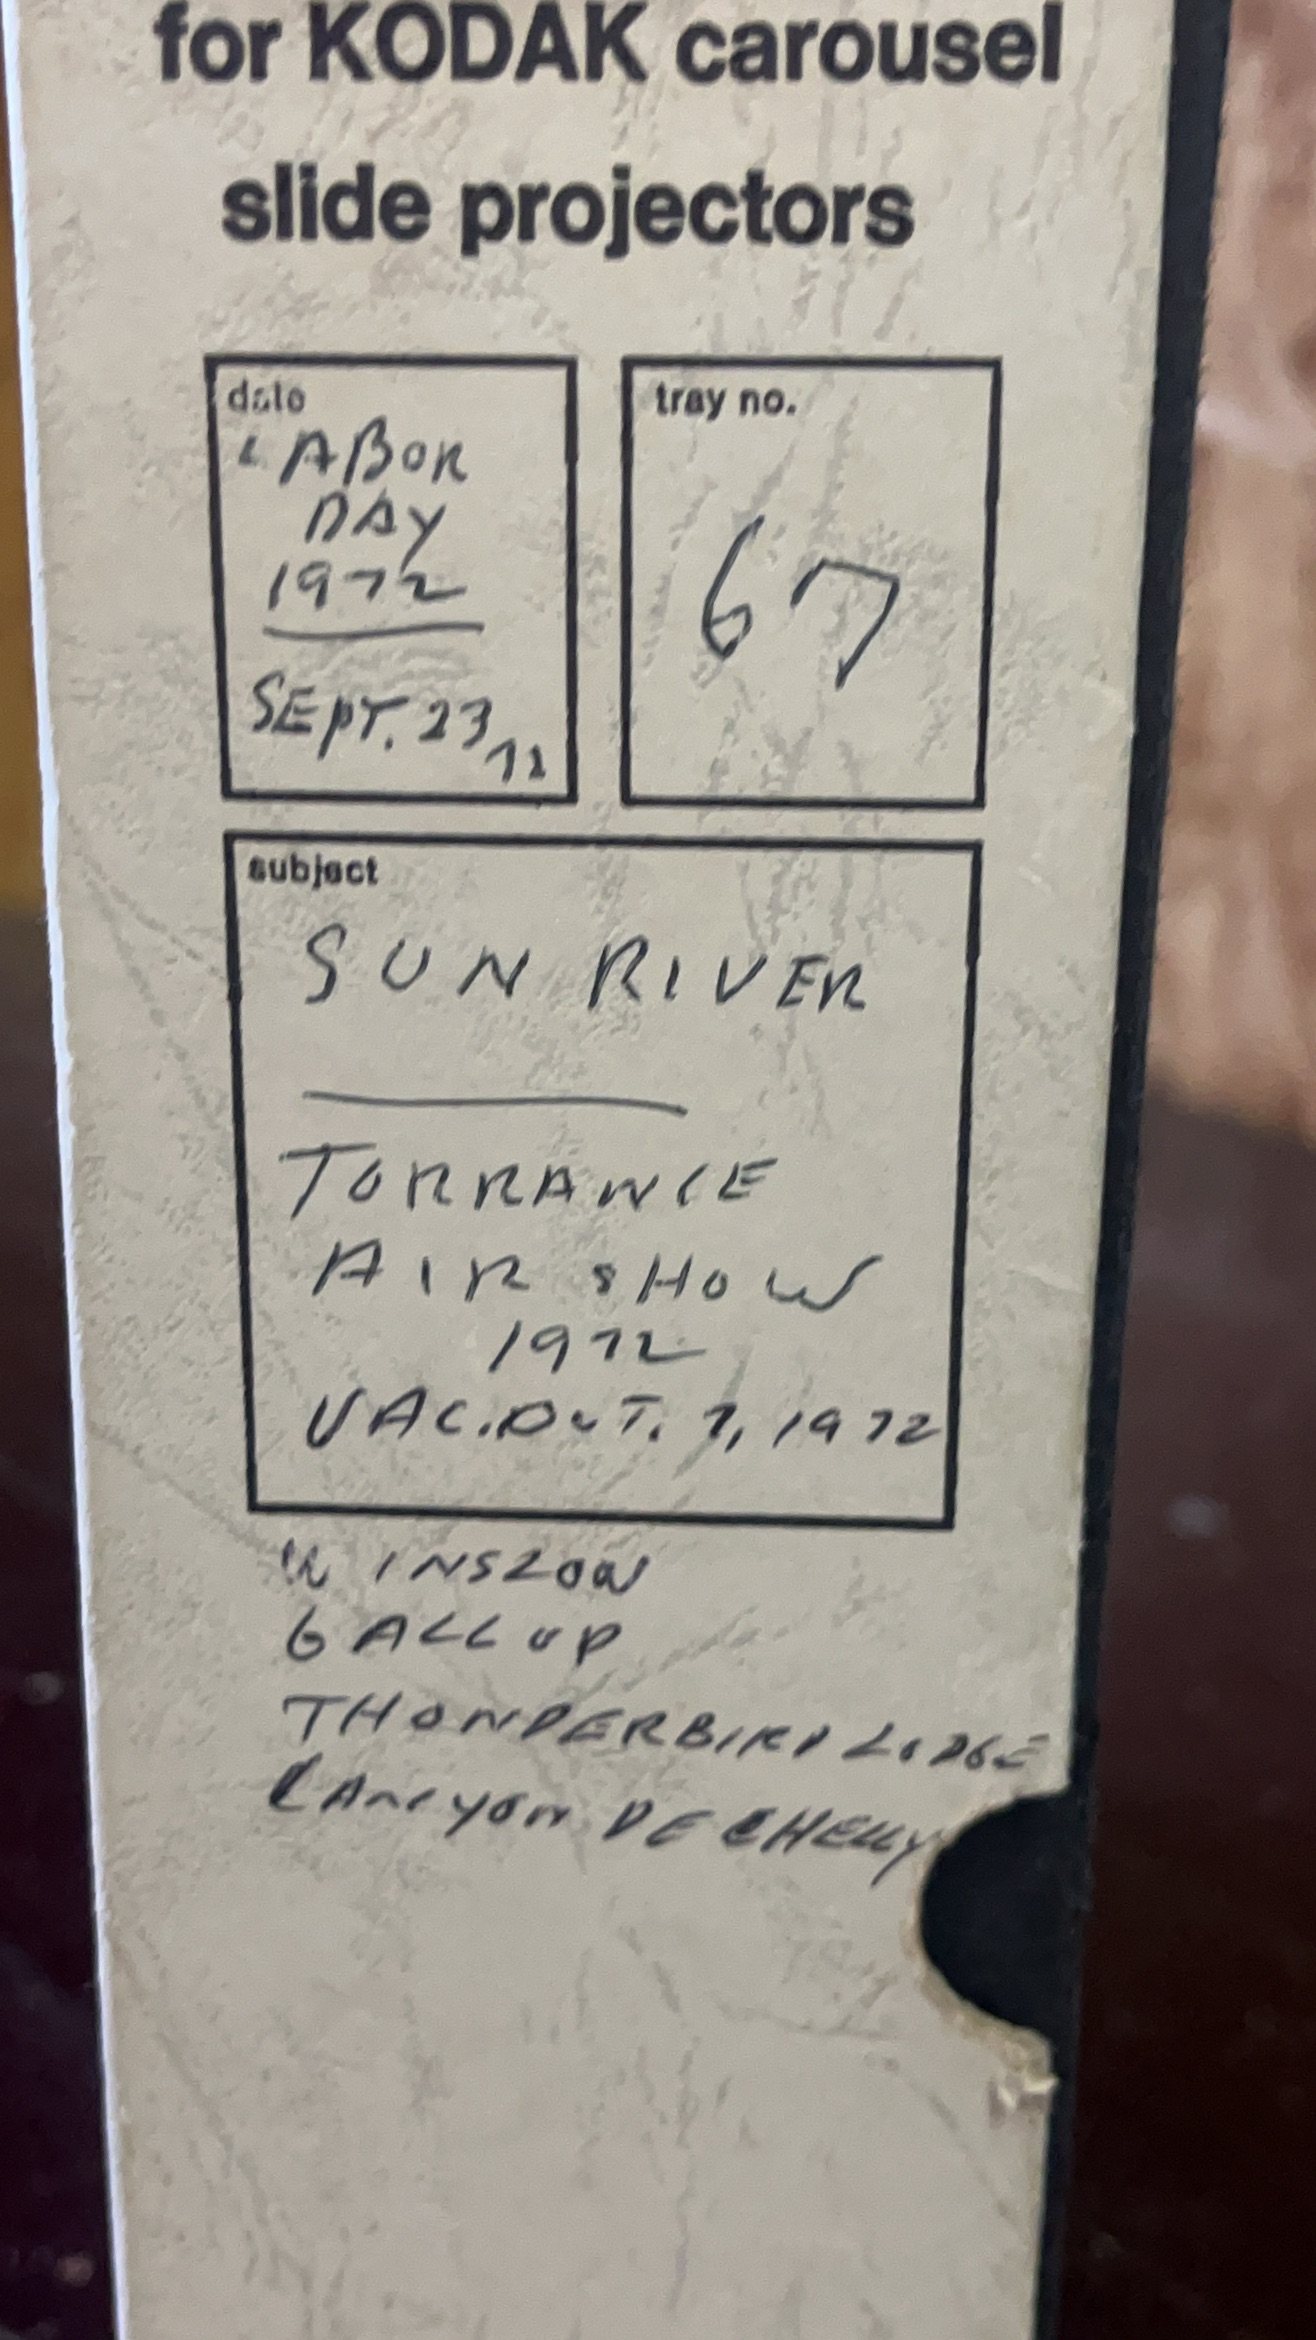 for KODAK carousel
slide projectors
date
LABOR
DAY
1972
SEPT. 23, 72
tray no.
67
subject
SUN RIVER
TORRANCE
AIR SHOW
1972
VAC. OCT. 7, 1972
WINSLOW
GALLUP
THUNDERBIRD LODGE
CANYON DE CHELLY